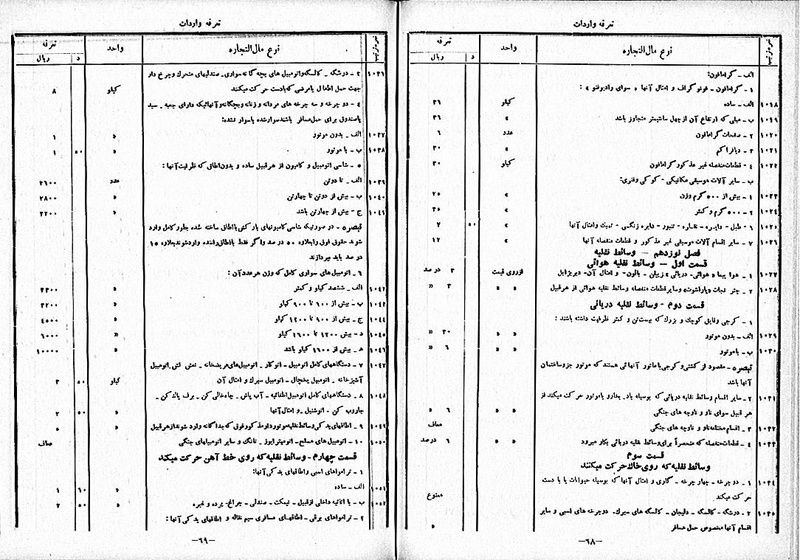 تعرفه واردات
نمره ترتیب
نوع مال‌التجاره
واحد
تعرفه
ریال
د
الف - گرامافون:
۱ - گرامافون - فونو گراف و امثال آنها « سوای رادیوفنو » :
۱۰۱۸ الف - ساده کیلو ۳۶
۱۰۱۹ ب - مبلی که ارتفاع آن از چهل سانتیمتر متجاوز باشد » ۳۶
۱۰۲۰ ۲ - صفحات گرامافون عدد ۶
۱۰۲۱ ۳ - دیافراکم » ۳۰
۱۰۲۲ ۴ - قطعات منفصله غیر مذکور گرامافون کیلو ۳۰
ب - سایر آلات موسیقی مکانیکی - کوکی وفنری:
۱۰۲۳ ۱ - بیش از ۵۰۰ گرم وزن »
۱۰۲۴ ۲ - ۵۰۰ گرم و کمتر »
۱۰۲۵ ۶ - طبل - دایره - نقاره - تنبور - دایره زنگی - تمبک وامثال آنها » ۵۰ ۲
۱۰۲۶ ۷ - سایر اقسام آلات موسیقی غیر مذکور و قطعات منفصله آنها » ۱۲
فصل نوزدهم - وسائط نقلیه
قسمت اول - وسائط نقلیه هوائی
۱۰۲۷ ۱ - هوا پیما « هوائی - دریائی » زپلین - بالون - و امثال آن - دیریژابل ازروی قیمت ۳ درصد
۱۰۲۸ ۲ - چتر نجات «پاراشوت» وسایر قطعات منفصله وسائط نقلیه هوائی از هر قبیل » » ۳ »
قسمت دوم - وسائط نقلیه دریائی
۱ - کرجی وقایق کوچک و بزرگ که بیست تن و کمتر ظرفیت داشته باشند :
۱۰۲۹ الف - بدون موتور » » ۲۰ »
۱۰۳۰ ب - باموتور » » ۶ »
تبصره - مقصود از کشتی و کرجی باموتور آنهائی هستند که موتور جزوساختمان
آنها باشد
۱۰۳۱ ۲ - سایر اقسام وسائط نقلیه دریائی که بوسیله باد - بخار و یا موتور حرکت میکند از
هر قبیل سوای ناو و ناوچه های جنگی » » ۶ »
۱۰۳۲ ۳ - اقسام مختلفه ناو و ناوچه های جنگی معاف
۱۰۳۳ ۴ - قطعات منفصله که منحصراً برای وسائط نقلیه دریائی بکار میرود » » ۶ درصد
قسمت سوم
وسائط نقلیه که روی خاک حرکت میکنند
۱۰۳۴ ۱ - دوچرخه - چهار چرخه - گاری و امثال آنها که بوسیله حیوانات یا با دست
حرکت میکند ممنوع
۱۰۳۵ ۲ - درشکه - کالسکه - دلیجان - کالسکه های سیرک - دوچرخه های اسبی و سایر
اقسام آنها مخصوص حمل مسافر »
—۶۸—
تعرفه واردات
نمره ترتیب
نوع مال‌التجاره
واحد
تعرفه
ریال
د
۱۰۳۶ ۳ - درشکه - کالسکه واتومبیل های بچه گانه سواری - صندلیهای متحرک وچرخ دار
جهت حمل اطفال یا مرضی که بادست حرکت میکنند کیلو ۸
۴ - دو چرخه و سه چرخه های مردانه و زنانه و بچگانه و آنهائیکه دارای جعبه - سبد
یا صندوق برای حمل مسافر باشند سوار شده یا سوار نشده:
۱۰۳۷ الف - بدون موتور » ۱
۱۰۳۸ ب - با موتور » ۵۰ ۱
۵ - شاسی اتومبیل و کامیون از هر قبیل ساده و بدون اطاق که ظرفیت آنها :
۱۰۳۹ الف - تا دوتن عدد ۲۶۰۰
۱۰۴۰ ب - بیش از دوتن تا چهارتن » ۲۸۰۰
۱۰۴۱ ج - بیش از چهارتن باشد » ۲۲۰۰
تبصره - در صورتیکه شاسی کامیونهای بار کش با اطاق ساخته شده بطور کامل وارد
شوند حقوق فوق را بعلاوه ۵۰ در صد و اگر فقط با اطاق راننده وارد شوند بعلاوه ۱۵
در صد باید بپردازند
۶ - اتومبیل های سواری کامل که وزن هر عدد آن:
۱۰۴۲ الف - ششصد کیلو و کمتر »
۱۰۴۳ ب - بیش از ۶۰۰ تا ۹۰۰ کیلو » ۳۲۰۰
۱۰۴۴ ج - بیش از ۹۰۰ تا ۱۲۰۰ کیلو » ۴۵۰۰
۱۰۴۵ د - بیش ۱۲۰۰ تا ۱۶۰۰ کیلو » ۶۰۰۰
۱۰۴۶ ه - بیش از ۱۶۰۰ کیلو باشد » ۱۰۰۰۰
۱۰۴۷ ۷ - دستگاههای کامل اتومبیل - اتوکار - اتومبیل‌های مریضخانه - نعش کش - اتومبیل
آشپزخانه - اتومبیل یخچال - اتومبیل سیرک و امثال آن کیلو ۵۰ ۳
۱۰۴۸ ۸ - دستگاههای کامل اتومبیل اطفائیه - آب پاش - چاه خالی کن - برف پاک کن -
جاروب کن - اتوشنیل وامثال آنها » ۵۰ ۲
۱۰۴۹ ۹ - اطاقهای یدکی وسائط نقلیه موتوردار مذکور فوق که جداگانه وارد شوند از هر قبیل » ۵
۱۰۵۰ ۱۰ - اتومبیل های مسلح - اتومیترایوز - تانک و سایر اتومبیلهای جنگی معاف
قسمت چهارم - وسائط نقلیه که روی خط آهن حرکت میکند
۱ - تراموا‌های اسبی واطاقهای یدکی آنها:
۱۰۵۱ الف - ساده » ۶۰ ۱
۱۰۵۲ ب - با اثاثیه داخلی از قبیل - نیمکت - صندلی - چراغ - پرده و غیره » ۵۰ ۲
۲ - تراموا‌های برقی - اطاقهای مسافری سیم نقاله و اطاقهای یدکی آنها :
—۶۹—